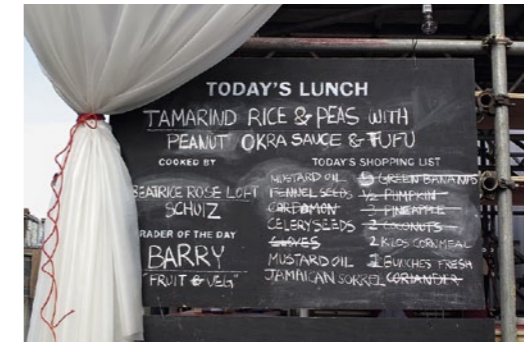 TODAY'S LUNCH
TAMARIND RICE & PEAS WITH
PEANUT OKRA SAUCE & FUFU
COOKED BY
BEATRICE ROSE LOFT
SCHULZ
RADER OF THE DAY
BARRY
"FRUIT & VEG"
TODAY'S SHOPPING LIST
MUSTARD OIL
FENNEL SEEDS
CARDAMON
CELERY SEEDS
CLOVES
MUSTARD OIL
JAMAICAN SORREL
5 GREEN BANANAS
½ PUMPKIN
3 PINEAPPLE
2 COCONUTS
2 KILOS CORNMEAL
BUNCHES FRESH
CORIANDER